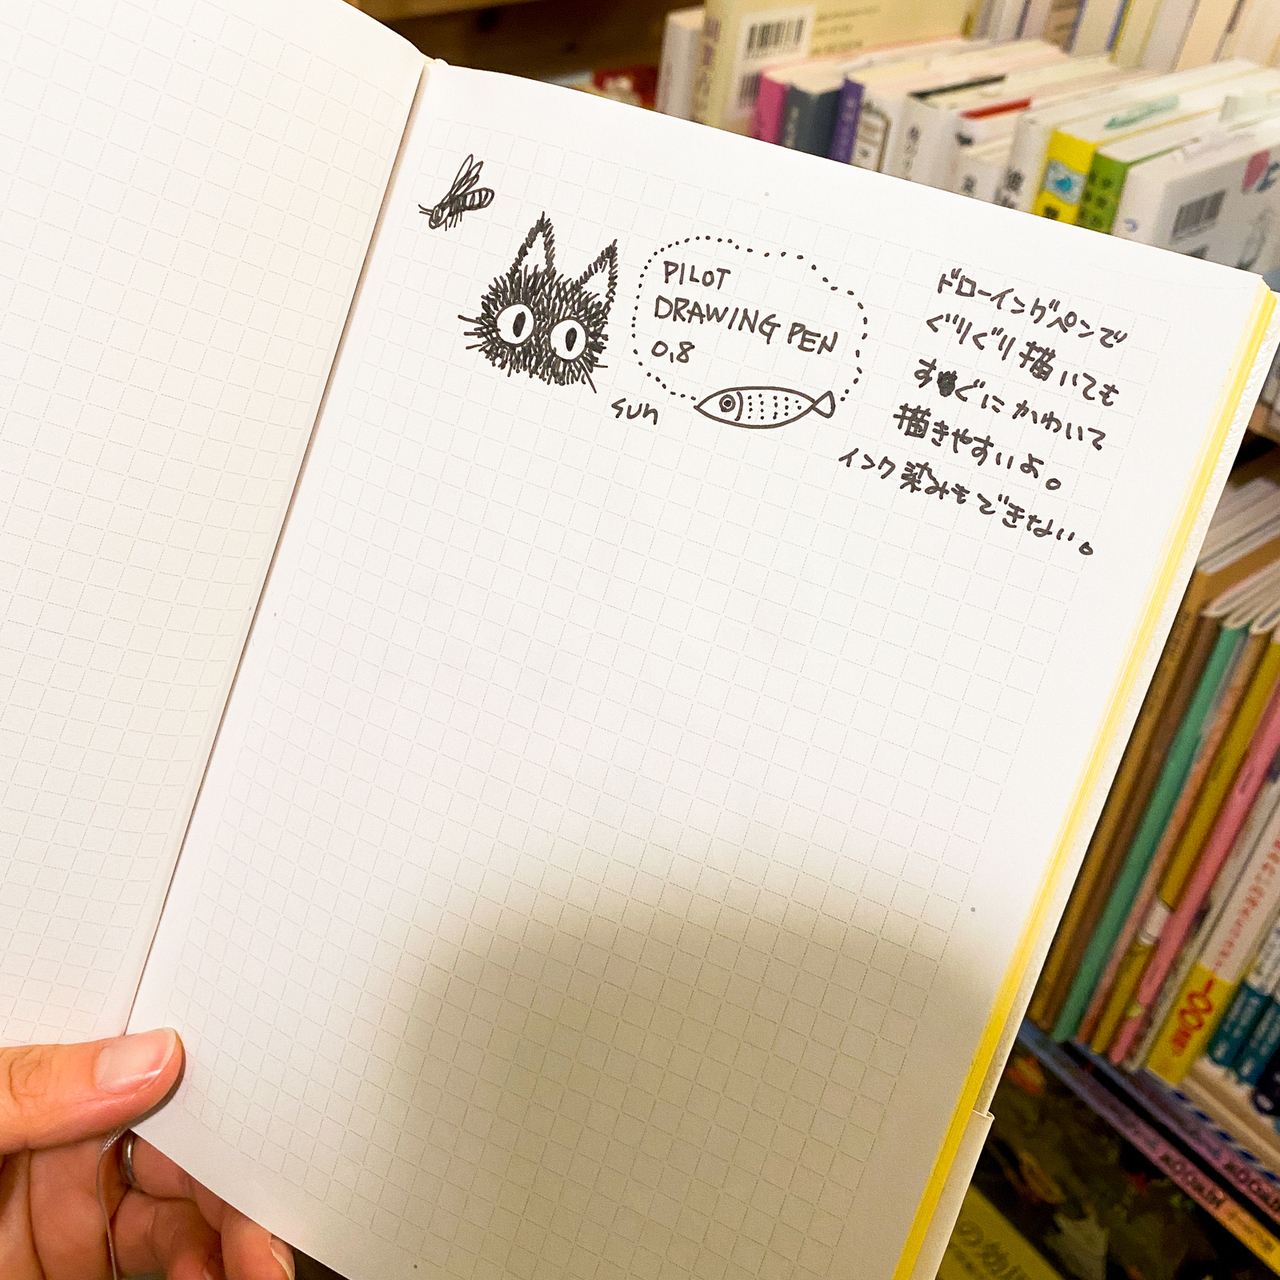 PILOT
DRAWING PEN
0.8
sun
ドローイングペンで
ぐりぐり描いても
すぐにかわいて
描きやすいよ。
インク染みもできない。